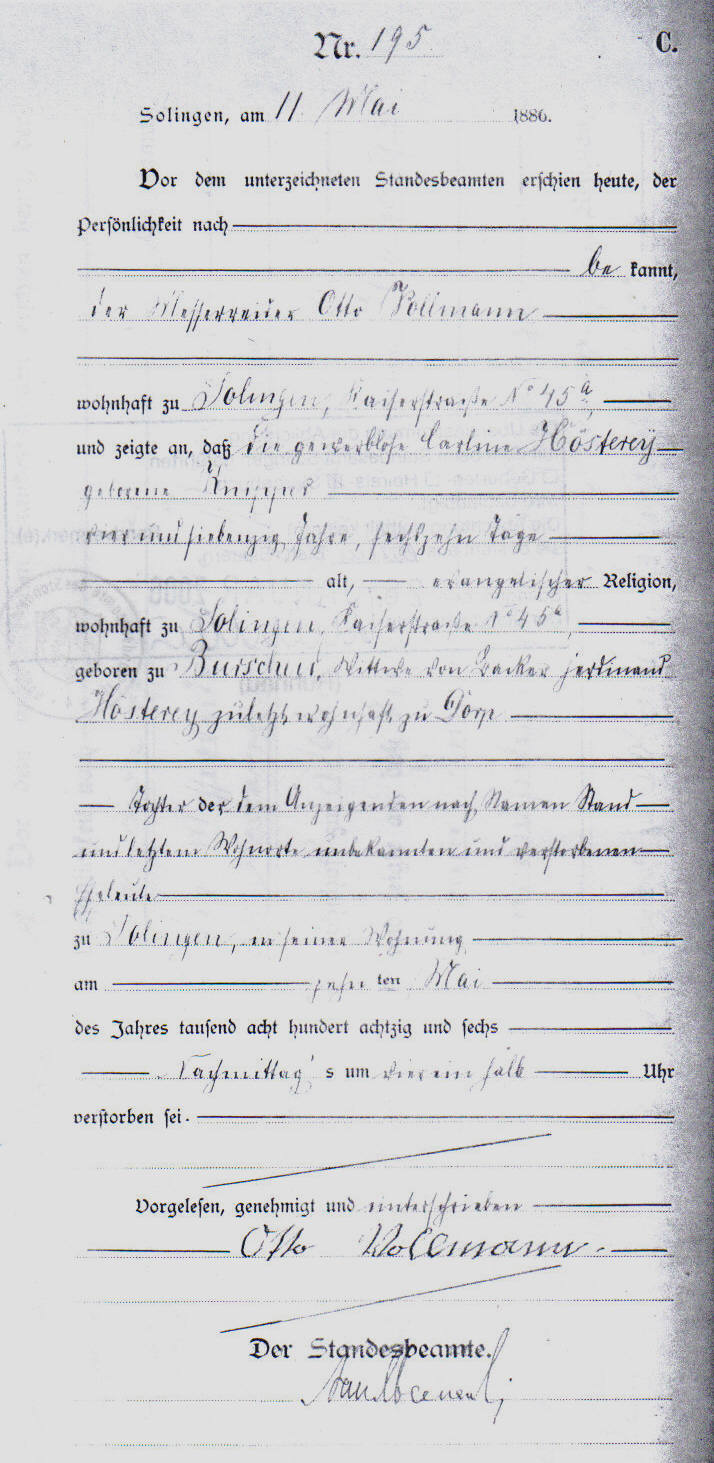 Nr. 195 C.
Solingen, am 11 Mai 1886.
Vor dem unterzeichneten Standesbeamten erschien heute, der
Persönlichkeit nach
be kannt,
der Otto Vollmann
wohnhaft zu Solingen, Kaiserstraße No 45a,
und zeigte an, daß die gewerblose Carline Hösterey
geborene
vierundsiebenzig Jahre, sechszehn Tage
alt, evangelischer Religion,
wohnhaft zu Solingen, Kaiserstraße No 45a,
geboren zu Wittwe von Ferdinand
Hösterey zuletzt wohnhaft zu Dorp
Tochter der dem Anzeigenden nach Namen Stand
und letztem Wohnorte unbekannten und verstorbenen
Eheleute
zu Solingen, in seiner Wohnung
am zehn ten Mai
des Jahres tausend acht hundert achtzig und sechs
Nachmittag s um vier ein halb Uhr
verstorben sei.
Vorgelesen, genehmigt und unterschrieben
Otto Vollmann
Der Standesbeamte.